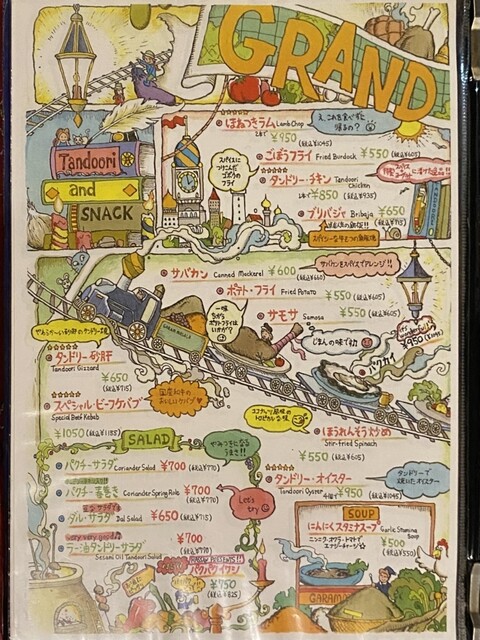 GRAND
★★★★★
ほねつきラム Lamb Chop
2本で ¥950
(税込¥1045)
え、これを食べずに帰るの？
ごぼうフライ Fried Burdock ¥550
(税込¥605)
★★★★★
タンドリー・チキン Tandoori Chicken
¥850
(税込¥935)
ブリバジャ Bribaja ¥650
(税込¥715)
Tandoori
and
SNACK
サバカン Canned Mackerel ¥600
(税込¥660)
サバカンをスパイスでアレンジ!!
ポテト・フライ Fried Potato ¥550
(税込¥605)
サモサ Samosa ¥550
(税込¥605)
じまんの味で勅
★★★★★
タンドリー砂肝
Tandoori Gizzard
¥650
(税込¥715)
★★★★★
スペシャル・ビーフケバブ
Special Beef Kebab
¥1050 (税込¥1155)
国産和牛のおいしいケバブ
ほうれんそう炒め
Stir-fried Spinach
¥550 (税込¥605)
★★★★★
タンドリー・オイスター
Tandoori Oyster
¥950
(税込¥1045)
タンドリーで焼いたオイスター
SALAD
やみつきになるうまさ!!
パクチー・サラダ Coriander Salad ¥700
(税込¥770)
パクチー春巻き Coriander Spring Roll ¥700
(税込¥770)
ダル・サラダ Dal Salad ¥650
(税込¥715)
Let's try
very very good
ラー油タンドリーサラダ ¥700
(税込¥770)
Sesami Oil Tandoori Salad
パクパクイワシ
¥750
(税込¥825)
SOUP
にんにくスタミナスープ Garlic Stamina Soup
ニンニク・オクラ・トマトでエナジーチャージ
¥500
(税込¥550)
GARAM